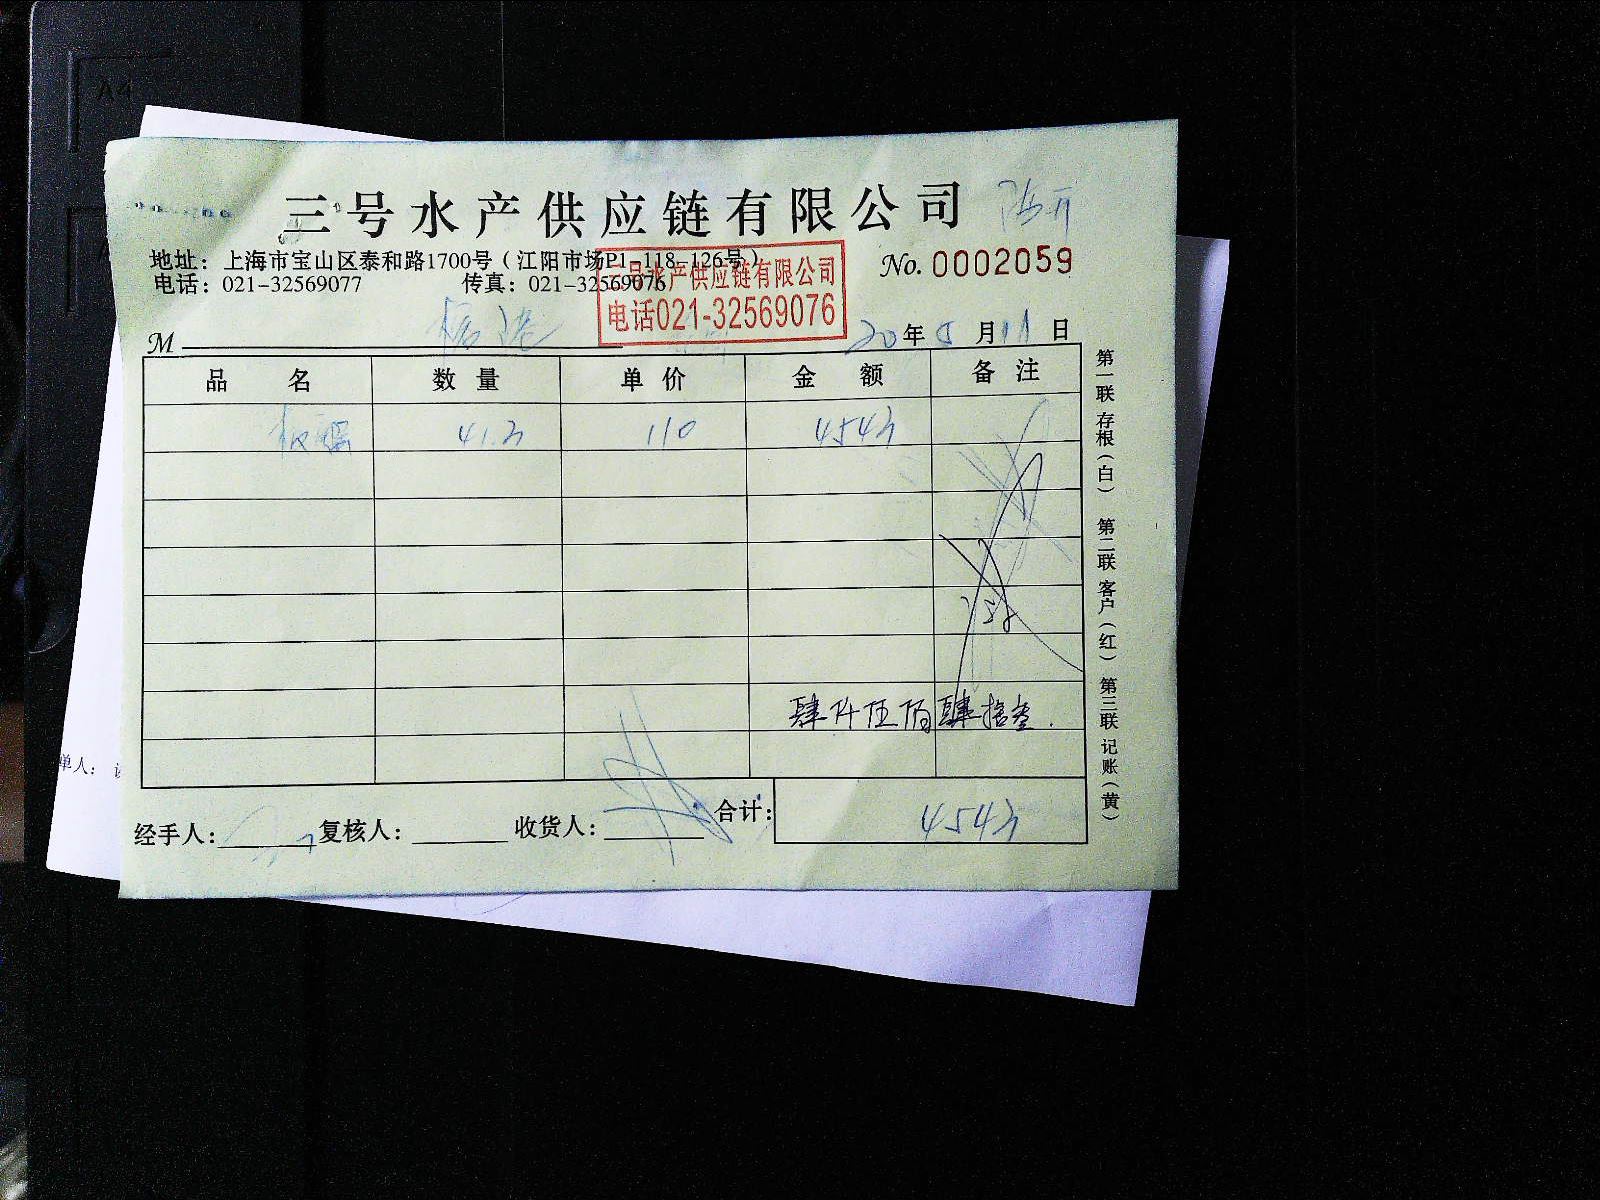 A4
三号水产供应链有限公司
地址：上海市宝山区泰和路1700号（江阳市场P1-118-126号）
No. 0002059
电话：021-32569077 传真：021-32569076
三号水产供应链有限公司
电话021-32569076
M
20年8月11日
品名 数量 单价 金额 备注
41.3 110 4543
肆仟伍佰肆拾叁.
经手人： 复核人： 收货人： 合计： 4543
第一联 存根（白） 第二联 客户（红） 第三联 记账（黄）
单人：